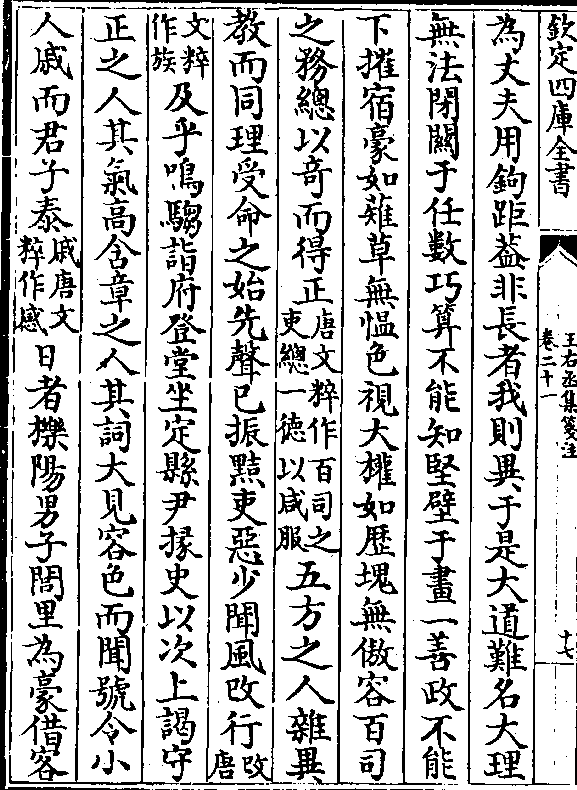 欽定四庫全書
王右丞集箋注
卷二十一
十七
為丈夫用鉤距葢非長者我則異于是大道難名大理
無法閉關于任數巧算不能知堅壁于畫一善政不能
下摧宿豪如薙草無愠色視大權如歴塊無傲容百司
之務總以竒而得正唐文粹作百司之吏總一徳以咸服五方之人雜異
教而同理受命之始先聲已振黠吏惡少聞風改行改唐
文粹作族及乎鳴騶詣府登堂坐定縣尹掾史以次上謁守
正之人其氣高含章之人其詞大見容色而聞號令小
人戚而君子泰戚唐文粹作慼日者櫟陽男子閭里為豪借客